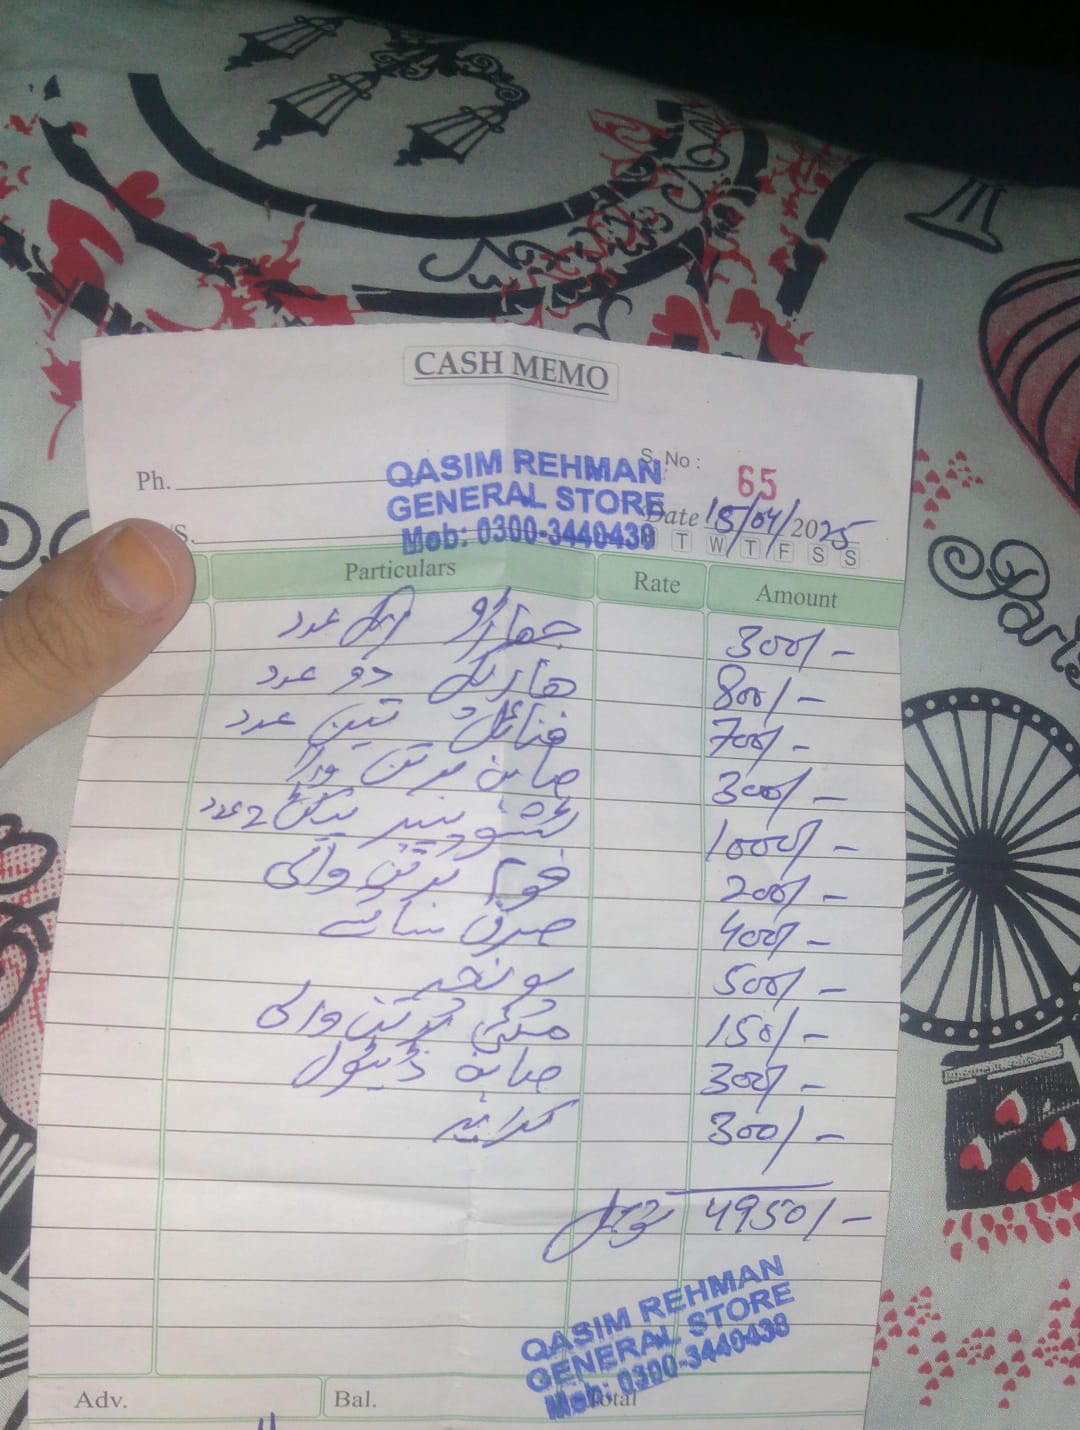 CASH MEMO
Ph.
QASIM REHMAN
GENERAL STORE
Mob: 0300-3440439
S. No : 65
Date 15/04/2025
M T W T F S S
/S.
Particulars Rate Amount
جھاڑو ایک عدد 300/-
ھارپک دو عدد 800/-
فنائل تین عدد 700/-
صابن برتن والا 300/-
ٹشو پیپر 2 عدد 1000/-
فوم برتن والی 200/-
صرف 400/-
پونچر 500/-
برتن والی 150/-
صابن ڈیٹول 300/-
کرایہ 300/-
4950/-
QASIM REHMAN
GENERAL STORE
Mob: 0300-3440438
Adv. Bal. Total
Paris